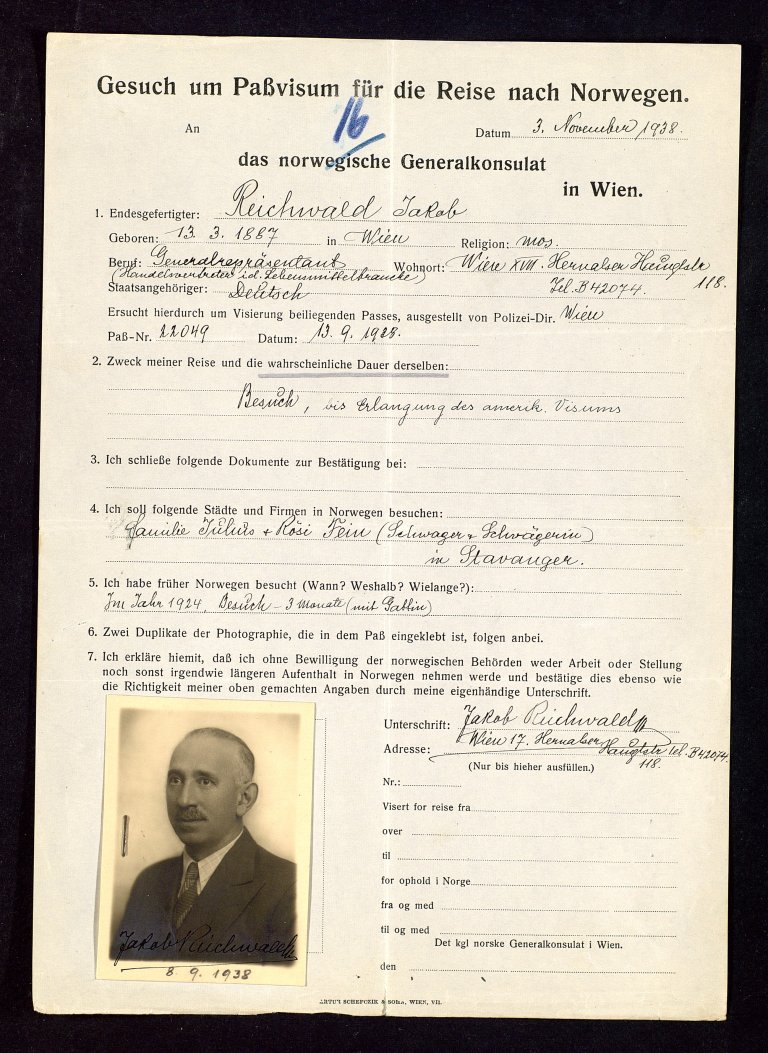 Gesuch um Paßvisum für die Reise nach Norwegen.
16
An
Datum 3. November 1938.
das norwegische Generalkonsulat
in Wien.
1. Endesgefertigter: Reichwald Jakob
Geboren: 13. 3. 1887 in Wien Religion: mos.
Beruf: Generalrepräsentant Wohnort: Wien XVII. Hernalser Hauptstr
(Handelsvertreter i.d. Lebensmittelbranche) 118.
Staatsangehöriger: Deutsch Tel. B 42074.
Ersucht hierdurch um Visierung beiliegenden Passes, ausgestellt von Polizei-Dir. Wien
Paß-Nr. 22049 Datum: 13. 9. 1928.
2. Zweck meiner Reise und die wahrscheinliche Dauer derselben:
Besuch, bis Erlangung des amerik. Visums
3. Ich schließe folgende Dokumente zur Bestätigung bei:
4. Ich soll folgende Städte und Firmen in Norwegen besuchen:
Familie Julius + Rösi Fein (Schwager + Schwägerin)
in Stavanger.
5. Ich habe früher Norwegen besucht (Wann? Weshalb? Wielange?):
Im Jahr 1924, Besuch - 3 Monate (mit Gattin)
6. Zwei Duplikate der Photographie, die in dem Paß eingeklebt ist, folgen anbei.
7. Ich erkläre hiemit, daß ich ohne Bewilligung der norwegischen Behörden weder Arbeit oder Stellung
noch sonst irgendwie längeren Aufenthalt in Norwegen nehmen werde und bestätige dies ebenso wie
die Richtigkeit meiner oben gemachten Angaben durch meine eigenhändige Unterschrift.
Unterschrift: Jakob Reichwald
Adresse: Wien 17. Hernalser Hauptstr Tel. B42074.
118.
(Nur bis hieher ausfüllen.)
Nr.:
Visert for reise fra
over
til
for ophold i Norge
fra og med
til og med
Det kgl norske Generalkonsulat i Wien.
den
Jakob Reichwald
8. 9. 1938
ARTUR SCHEFCZIK & SOHN, WIEN, VII.